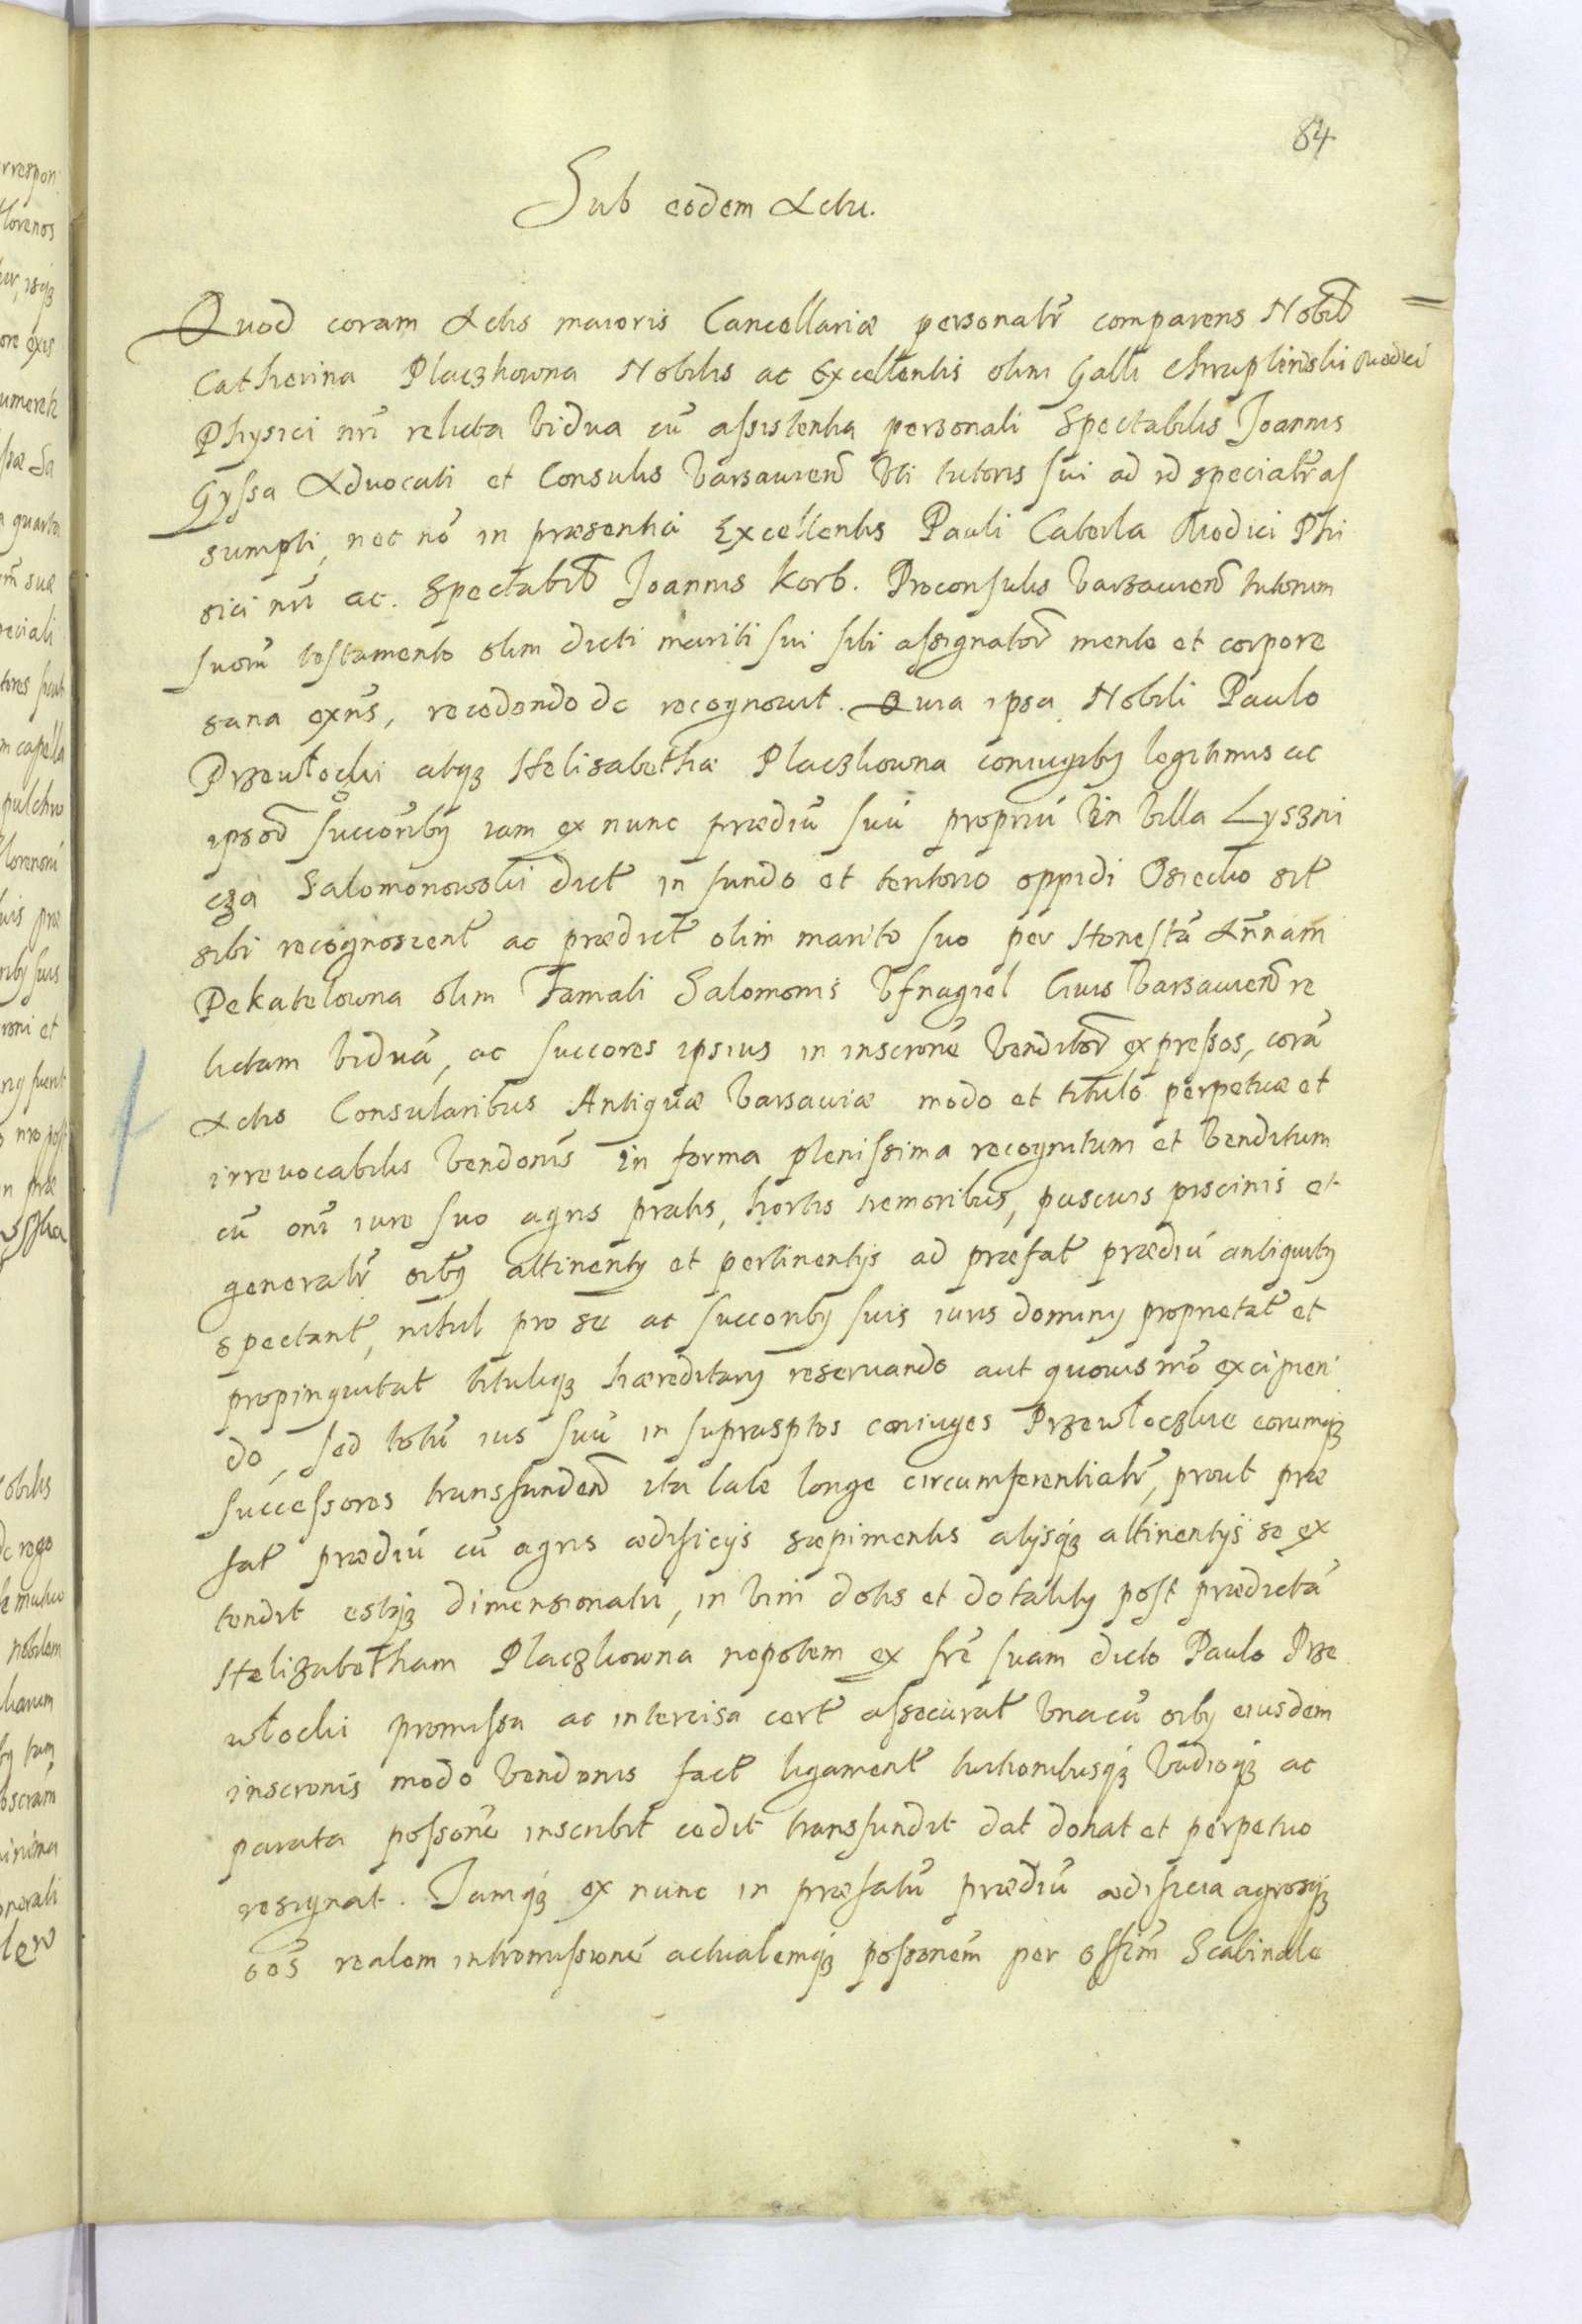 84
Sub eodem Actu.
Quod coram Actis maioris Cancellariæ personalr̃ comparens Nobil̃
Catherina Placzkowna Nobilis ac Excellentis olim Galli Chruplinski Medici
Physici nr̃i relicta vidua cũ assistentia personali Spectabilis Joannis
Gyssa Advocati et Consulis Varsavien̄ Vti tutoris sui ad id specialr̃ as
sumpti, nec nō in præsentia Excellentis Pauli Caberla Medici Phi
sici nr̃i ac. Spectabil̃ Joannis Korb. Proconsulis Varsavien̄ tutorum
suorũ testamento olim dicti mariti sui sibi assignator̃ mente et corpore
sana exn̄s, recedendo dc recognovit. Quia ipsa Nobili Paulo
Przewłocki atqꝫ Helisabethæ Placzkowna coniugibꝰ legitimis ac
ipsor̃ succōribꝰ iam ex nunc prædiũ suũ propriũ in Villa Lyszni
cza Salomonowski dict̃ in fundo et teritorio oppidi Osiecko sit̃
sibi recognoscent̃ ac prædict̃ olim marito suo per Honestã Ãnnam
Pekatelowna olim Famati Salomonis Vfnagiel Civis Varsavien̄ re
lictam viduã, ac succores ipsius in inscrōne Venditor̃ expressos, corã
Actis Consularibus Antiquæ Varsaviæ modo et titulo perpetuæ et
irrevocabilis Vendonis in forma plenissima recognitum et Venditum
cũ oñi iure suo agris pratis, hortis nemoribus, pascuis piscinis et
generalr̃ oĩbꝰ attinentꝰ et pertinentijs ad præfat̃ prædiũ antiquitꝰ
spectant̃, nihil pro se ac succoribꝰ suis iuris dominij proprietat̃ et
propinquitat̃ tituliqꝫ hæreditarij reservando aut quovis mō excipien
do, sed totũ ius suũ in suprasptos coniuges Przewłoczkie eorumqꝫ
successores transfunden̄ ita late longe circumferentialr̃, prout præ
fat̃ prædiũ cũ agris ædificijs sæpimentis alijsqꝫ attinentijs se ex
tendit estqꝫ dimensionatũ, in vim dotis et dotalitꝰ post prædictã
Helizabetham Placzkowna nepotem ex fr̃e suam dicto Paulo Prze
włocki promissa ac intercisa cert̃ assecurat̃ Vnacũ oĩbꝰ eiusdem
inscronis modo Vendonis fact̃ ligament̃ tuitionibusqꝫ Vadioqꝫ ac
parata possōne inscribit cedit transfundit dat donat et perpetuo
resignat. Jamqꝫ ex nunc in præfatũ prædiũ ædificia agrosqꝫ
eōs realem intromissionẽ actualemqꝫ possonẽm per offim̃ Scabinale